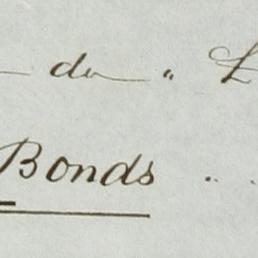 do " £
Bonds " "